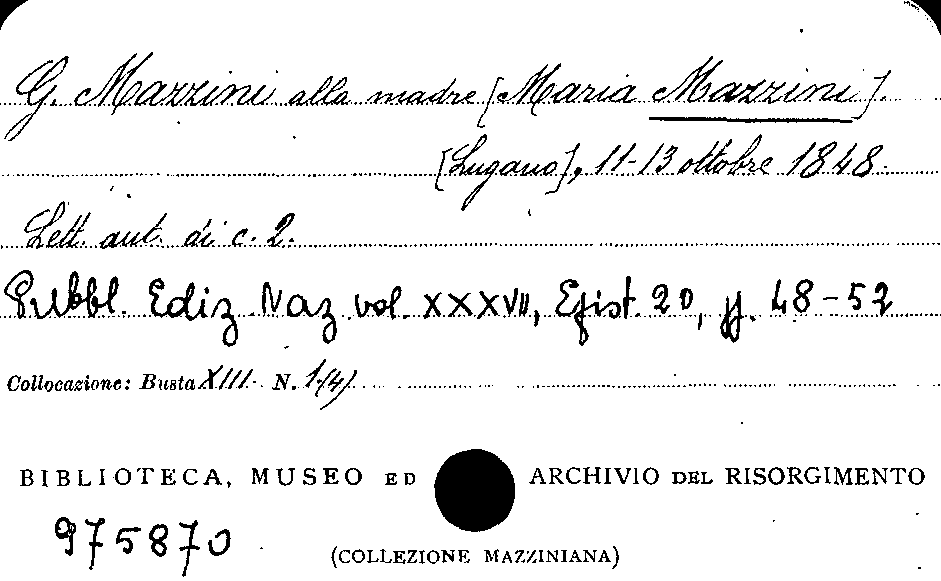 G. Mazzini alla madre [Maria Mazzini].
[Lugano], 11-13 ottobre 1848.
Lett. aut. di c. 2.
Pubbl. Ediz. Naz. vol. XXXVII, Epist. 20, pp. 48-52
Collocazione: Busta XIII. N. 1/4/.
BIBLIOTECA, MUSEO ED ARCHIVIO DEL RISORGIMENTO
975870
(COLLEZIONE MAZZINIANA)